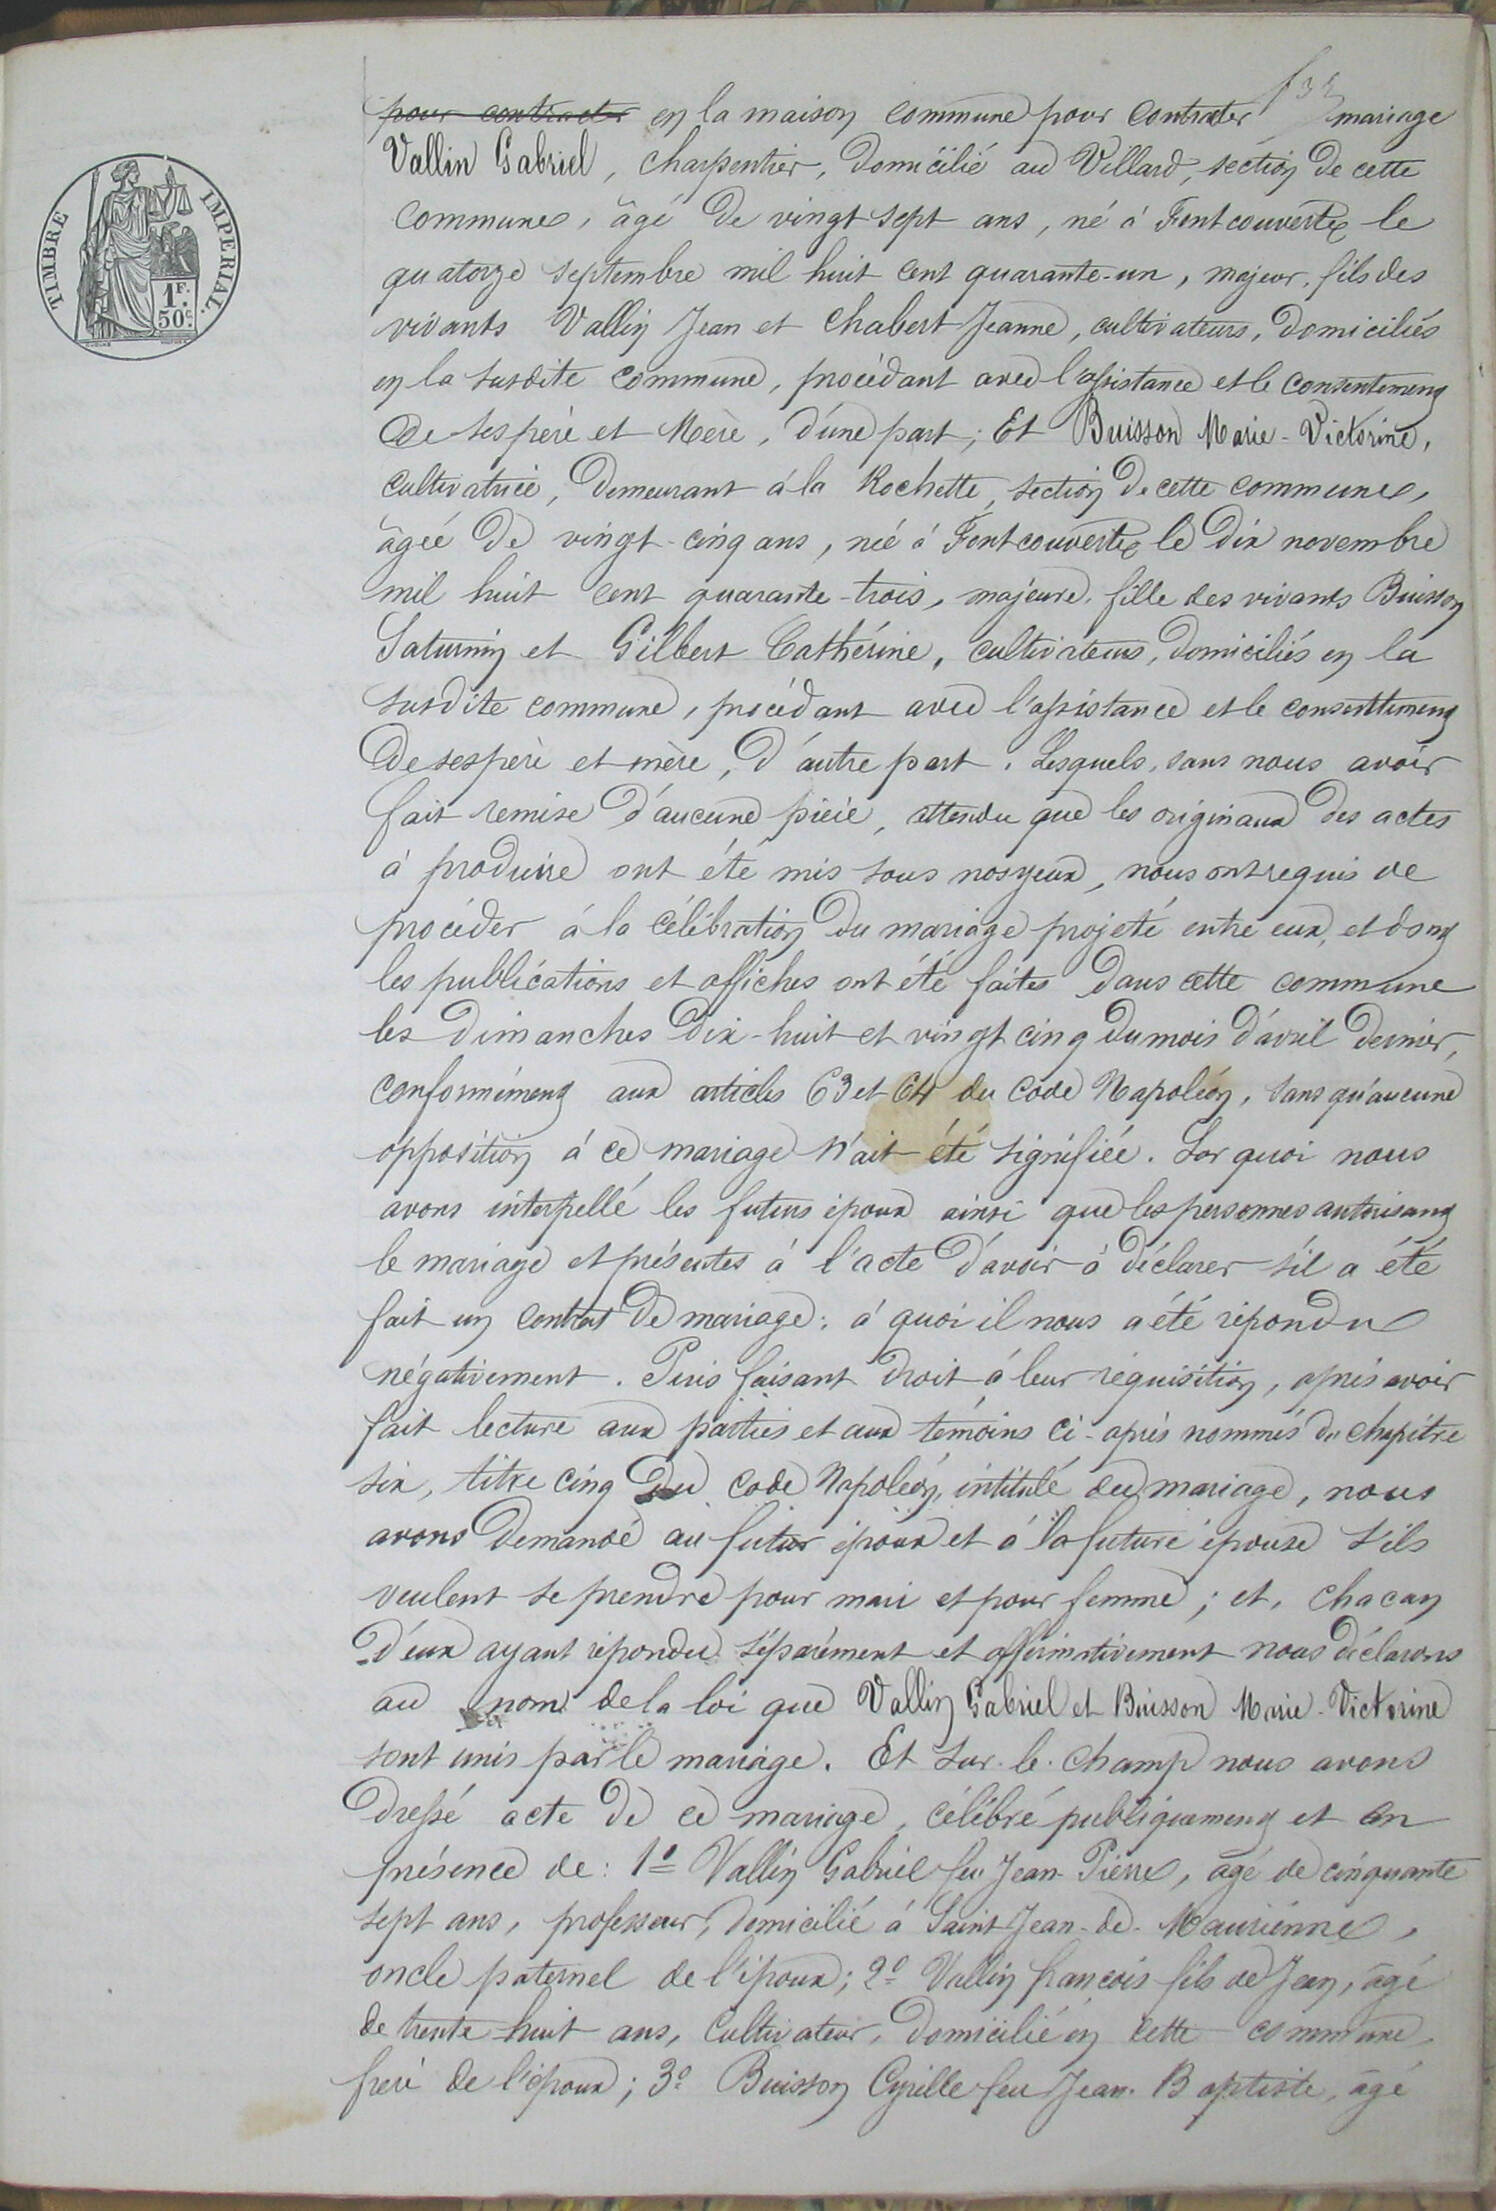 TIMBRE IMPERIAL.
1F.
50c
pour contracter en la maison commune pour contracter mariage
Vallin Gabriel, charpentier, domicilié au Villard, section de cette
commune, âgé de vingt sept ans, né à Fontcouverte le
quatorze septembre mil huit cent quarante-un, majeur, fils des
vivants Vallin Jean et Chabert Jeanne, cultivateurs, domiciliés
en la susdite commune, procédant avec l'assistance et le consentement
de ses père et Mère, d'une part; Et Buisson Marie-Victorine,
cultivatrice, demeurant à la Rochette, section de cette commune,
âgée de vingt-cinq ans, née à Fontcouverte le dix novembre
mil huit cent quarante-trois, majeure, fille des vivants Buisson
Saturnin et Gilbert Cathérine, cultivateurs, domiciliés en la
susdite commune, procédant avec l'assistance et le consentement
de ses père et mère, d'autre part. Lesquels, sans nous avoir
fait remise d'aucune pièce, attendu que les originaux des actes
à produire ont été mis sous nos yeux, nous ont requis de
procéder à la célébration du mariage projeté entre eux, et dont
les publications et affiches ont été faites dans cette commune
les dimanches dix-huit et vingt cinq du mois d'avril dernier,
conformément aux articles 63 et 64 du Code Napoléon, sans qu'aucune
opposition à ce mariage n'ait été signifiée. Sur quoi nous
avons interpellé les futurs époux ainsi que les personnes autorisant
le mariage et présentes à l'acte d'avoir à déclarer s'il a été
fait un contrat de mariage: à quoi il nous a été répondu
négativement. Puis faisant droit à leur réquisition, après avoir
fait lecture aux parties et aux témoins ci-après nommés du chapitre
six, titre cinq du Code Napoléon, intitulé du mariage, nous
avons demandé au futur époux et à la future épouse s'ils
veulent se prendre pour mari et pour femme; et, chacun
d'eux ayant répondu séparément et affirmativement nous déclarons
au nom de la loi que Vallin Gabriel et Buisson Marie-Victorine
sont unis par le mariage. Et sur-le-champ nous avons
dressé acte de ce mariage, célébré publiquement et en
présence de: 1° Vallin Gabriel feu Jean-Pierre, âgé de cinquante
sept ans, professeur, domicilié à Saint-Jean-de-Maurienne,
oncle paternel de l'époux; 2° Vallin françois fils de Jean, âgé
de trente-huit ans, Cultivateur, domicilié en cette commune,
frère de l'époux; 3° Buisson Cyrille feu Jean-Baptiste, âgé